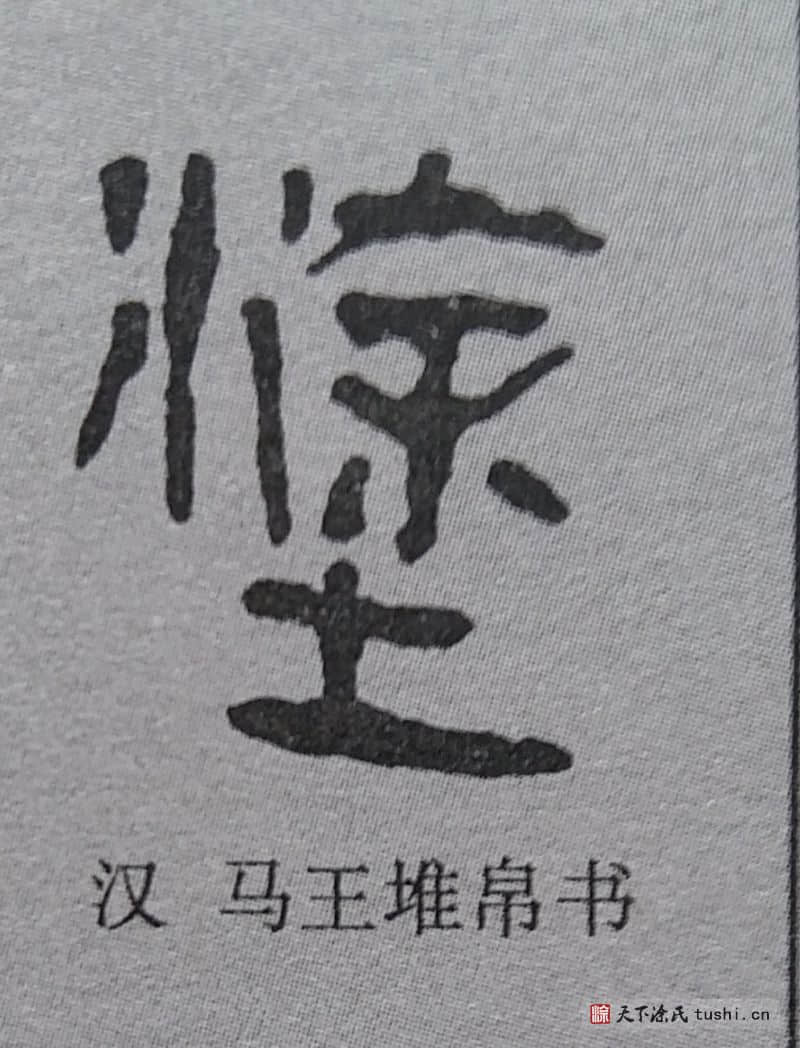 塗
汉 马王堆帛书
涂 天下涂氏 tushi.cn